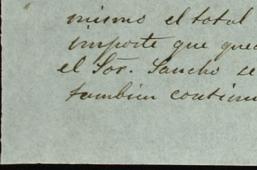 mismo el total
importe que que
el Sor. Sancho se
tambien continu